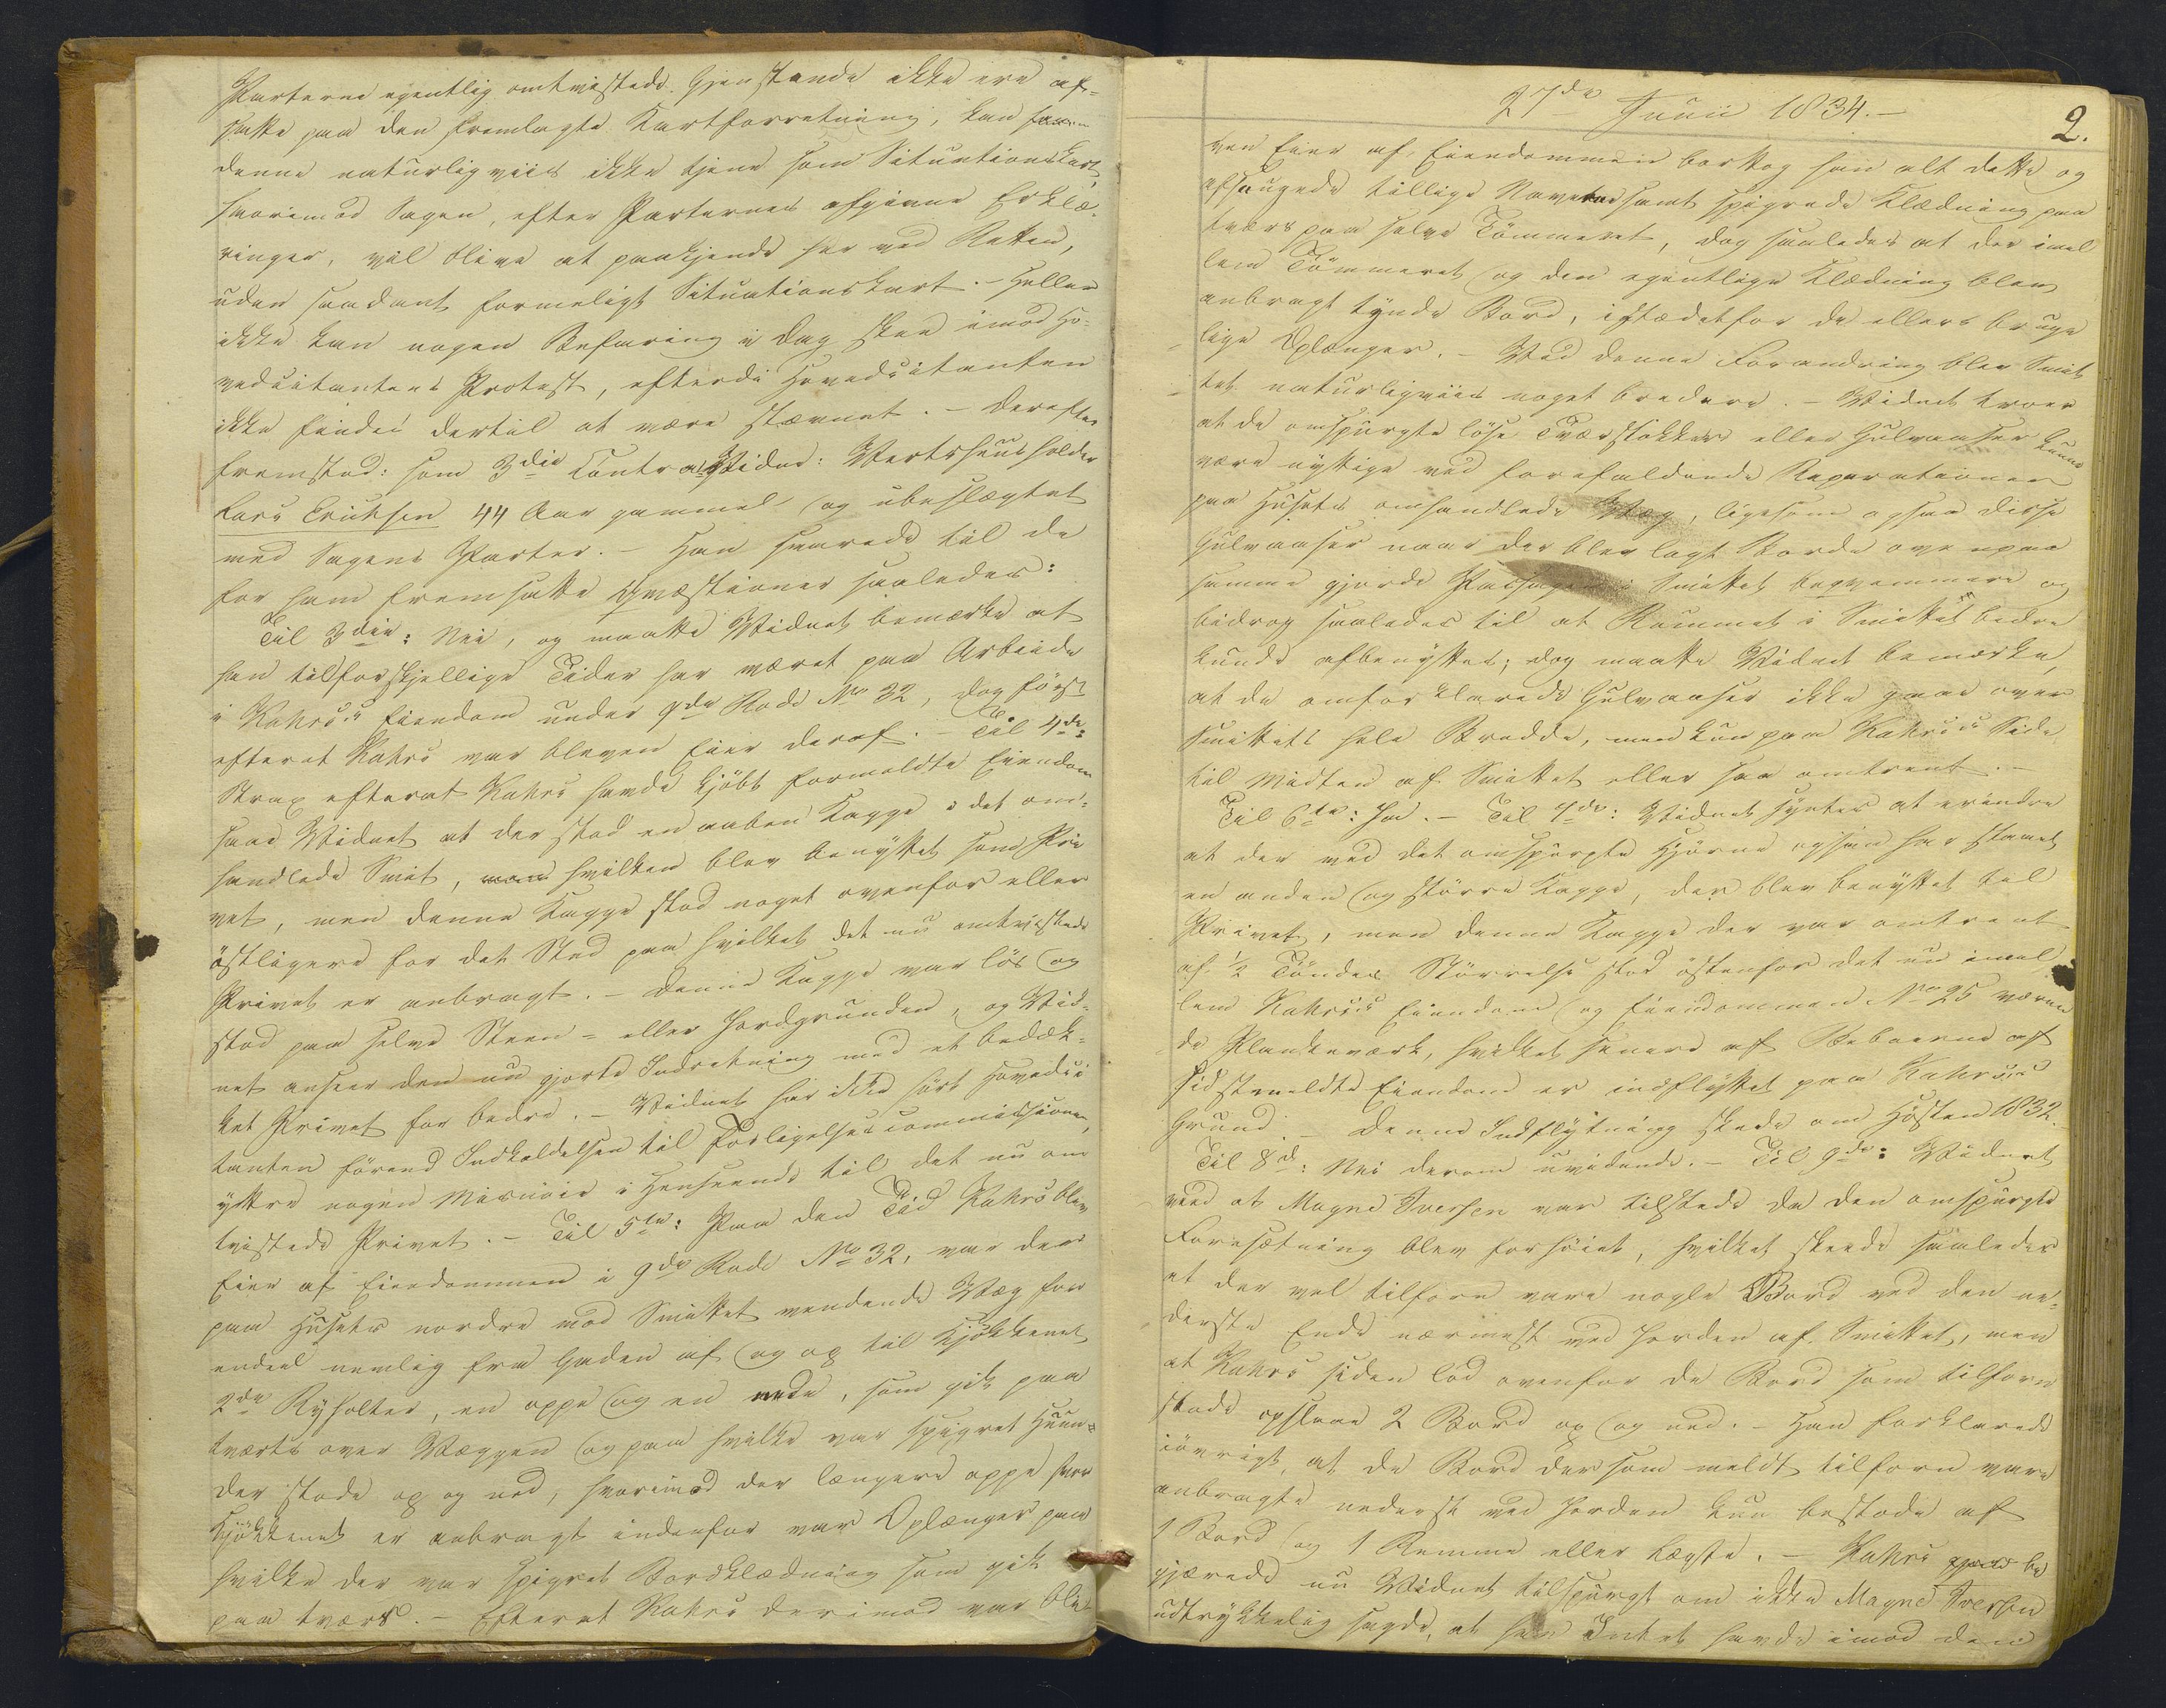 Parterne egentlig omtvistede Gjenstande ikke ere af-
satte paa den fremlagte Kartforretning, kan
denne naturligviis ikke tjene som Situationskart,
hvorimod Sagen, efter Parternes afgivne Erklæ-
ringer, vil blive at paakjende her ved Retten,
uden saadant formeligt Situationskart. – Heller
ikke kan nogen Befaring i Dag skee imod Ho-
vedcitantens Protest, efterdi Hovedcitanten
ikke findes dertil at være stævnet. – Derefter
fremstod: som 3die Contra Vidne: Vertshuusholder
Lars Erichsen 44 Aar gammel og ubeslægtet
med Sagens Parter. – Han svarede til de
for ham fremsatte Qvæstioner saaledes:
Til 3die: Nei, og maatte Vidnet bemærke at
han til forskjellige Tider har været paa Arbeide
i Kahrs's Eiendom under 9de Rode No 32, dog først
efterat Kahrs var bleven Eier deraf. – Til 4de:
Strax efterat Kahrs havde kjøbt formeldte Eiendom
saae Vidnet at der stod en aaben Kagge i det om-
handlede Smit, hvilken blev benyttet som Pri
vet, men denne Kagge stod noget ovenfor eller
østligere for det Sted paa hvilket det nu omtvistede
Privet er anbragt. – Denne Kagge var løs og
stod paa selve Steen- eller Jordgrunden, og Vid-
net anseer den nu gjorte Indretning med et bedæk-
ket Privet for bedre. – Vidnet har ikke hørt Hovedci
tanten førend Indkaldelsen til Forligelsescommissionen,
yttre nogen Misnøie i Henseende til det nu om
tvistede Privet. – Til 5te: Paa den Tid Kahrs blev
Eier af Eiendommen i 9de Rode No 32, var der
paa Husets nordre mod Smittet vendende Væg for
endeel nemlig fra Gaden af og op til Kjøkkenet
2de Ryholter, en oppe og en nede, som gik paa
tværs over Væggen og paa hvilke var spigret Huun-
der stode op og ned, hvorimod der længere oppe hvor
Kjøkkenet er anbragt indenfor var Oplænger paa
hvilke der var spigret Bordklædning som gik
paa tværs. – Efterat Kahrs derimod var ble-
27de Junii 1834. –
2.
ven Eier af Eiendommen borttog han alt dette og
afsaugede tillige Novene samt spigrede Klædning paa
tværs paa selve Tømmeret, dog saaledes at der imel
lem Tømmeret og den egentlige Klædning blev
anbragt tynde Bord, istædetfor de ellers bruge
lige Oplænger. – Ved denne Forandring blev Smit
tet naturligviis noget bredere. – Vidnet troer
at de omspurgte løse Tværstokker eller Gulvaaser kunne
være nyttige ved forefaldende Reparationer
paa Husets omhandlede Væg, ligesom ogsaa disse
Gulvaaser naar der blev lagt Borde oven paa
samme gjorde Passagen i Smittet beqvemmere og
bidrog saaledes til at Rummet i Smittet bedre
kunde afbenyttes; dog maatte Vidnet bemærke,
at de omforklarede Gulvaaser ikke gaae over
Smittets hele Bredde, men kun paa Kahrs's Side
til Midten af Smittet eller saa omtrent. –
Til 6te: Ja. – Til 7de: Vidnet syntes at erindre
at der ved det omspurgte Hjørne ogsaa har staaet
en anden og større Kagge, der blev benyttet til
Privet, men denne Kagge der var omtrent
af ½ Tøndes Størrelse stod østenfor det nu imel
lem Kahrs's Eiendom og Eiendommen No 25 væren
de Plankeværk, hvilket senere af Beboerne af
sidstmeldte Eiendom er indflyttet paa Kahrs's
Grund. – Denne Indflytning skede om Høsten 1832.
Til 8de: Nei derom uvidende. – Til 9de: Vidnet
veed at Magne Iversen var tilstede da den omspurgte
Foresætning blev forhøiet, hvilket skeede saaledes
at der vel tilforn vare nogle Bord ved den ne-
derste Ende nærmest ved Jorden af Smittet, men
at Kahrs siden lod ovenfor de Bord som tilforn
stode opslaae 2 Bord op og ned. – Han forklarede
iøvrigt, at de Bord der som meldt tilforn vare
anbragte nederst ved Jorden kun bestode af
1 Bord og 1 Remme eller Lægte. – Kahrs be
gjærede nu Vidnet tilspurgt om ikke Magne Iversen
udtrykkelig sagde, at han Intet havde imod den